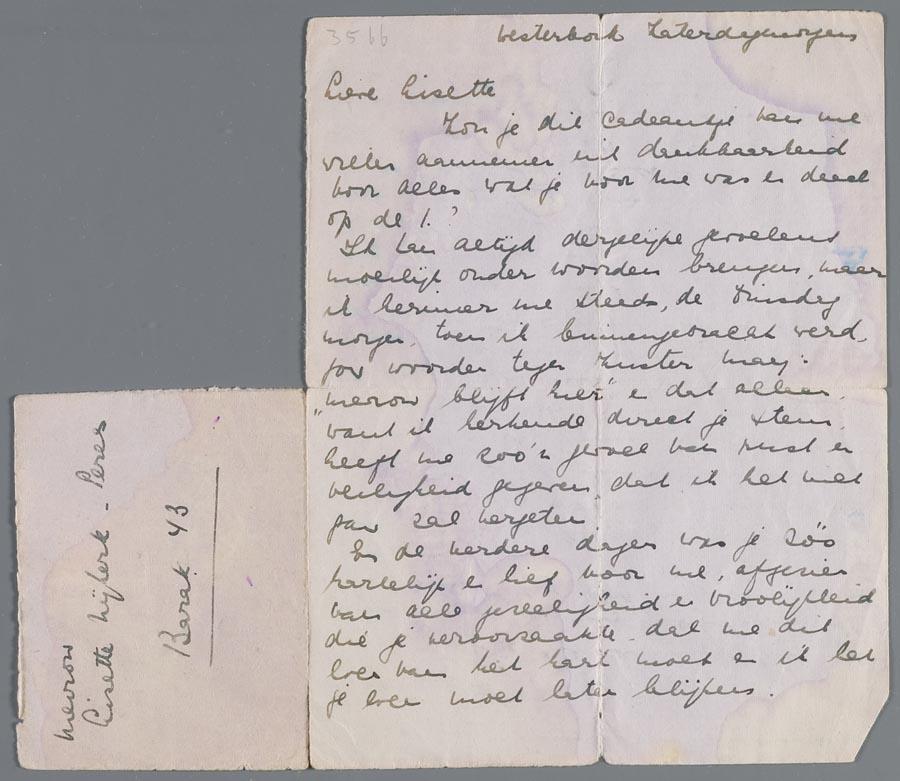 3566
Westerbork Zaterdagmorgen
Lieve Lisette
Zou je dit cadeautje van me
willen aannemen uit dankbaarheid
voor alles wat je voor me was en deed
op de 1.?
Ik kan altijd dergelijke gevoelens
moeilijk onder woorden brengen, maar
ik herinner me steeds, de Dinsdag
morgen, toen ik binnengebracht werd,
jow woorden tegen zuster Mary:
"mevrow blijft hier" en dat alleen,
want ik herkende direct je stem,
heeft me zoo'n gevoel van rust en
veiligheid gegeven, dat ik het niet
gauw zal vergeten
En de verdere dagen was je zoo
hartelijk en lief voor me, afgezien
van alle gezelligheid en vroolijkheid
die je veroorzaakte, dat me dit
toen van het hart moet en ik het
je toen moet laten blijken.
Mevrow
Lisette Nijkerk - Peres
Barak 43